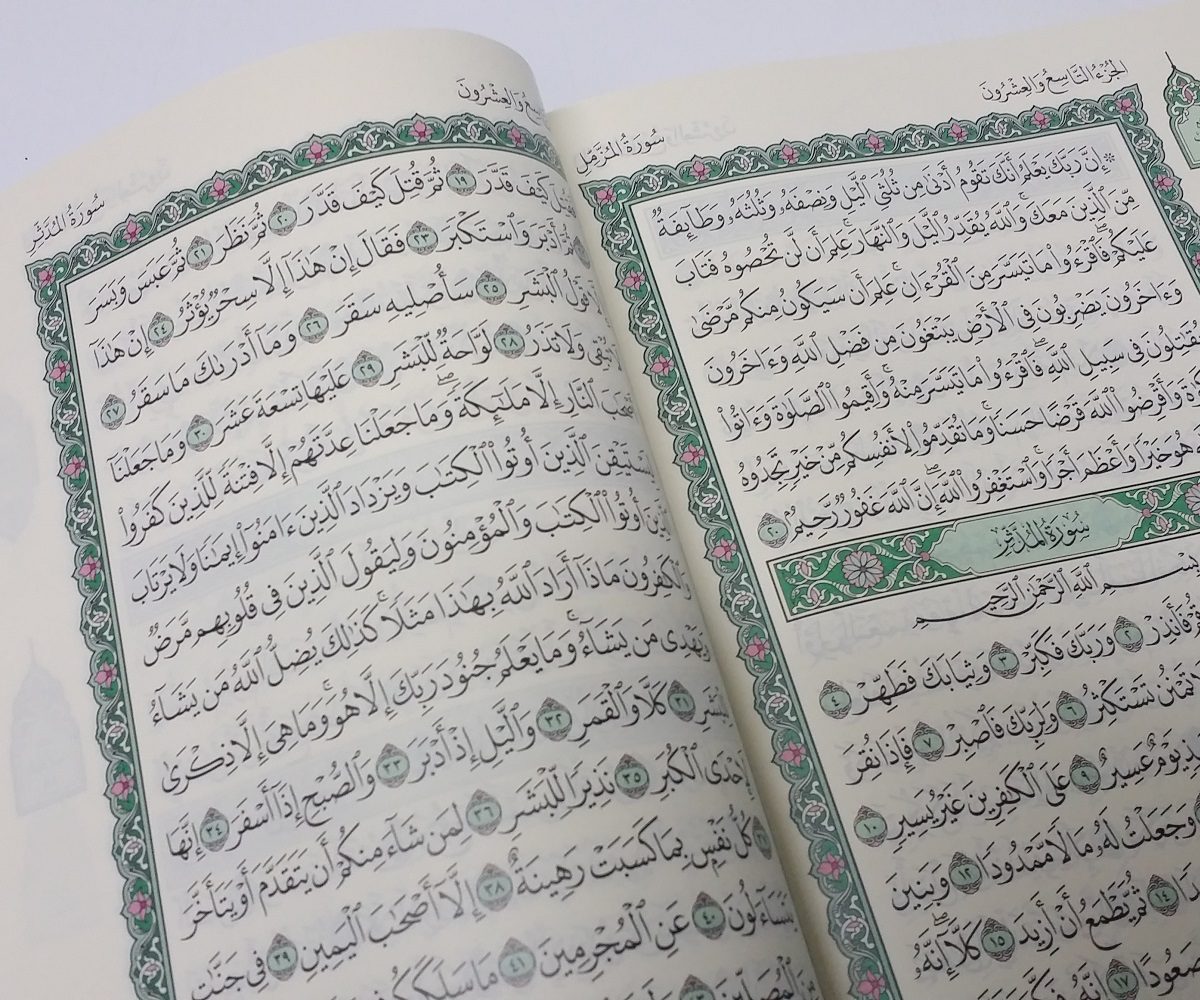 الجُزْءُ التَّاسِعُ وَالعِشْرُونَ
سُورَةُ المُزَّمِّلِ
۞ إِنَّ رَبَّكَ يَعْلَمُ أَنَّكَ تَقُومُ أَدْنَىٰ مِن ثُلُثَىِ ٱلَّيْلِ وَنِصْفَهُۥ وَثُلُثَهُۥ وَطَآئِفَةٌ
مِّنَ ٱلَّذِينَ مَعَكَۚ وَٱللَّهُ يُقَدِّرُ ٱلَّيْلَ وَٱلنَّهَارَۚ عَلِمَ أَن لَّن تُحْصُوهُ فَتَابَ
عَلَيْكُمْۖ فَٱقْرَءُوا۟ مَا تَيَسَّرَ مِنَ ٱلْقُرْءَانِۚ عَلِمَ أَن سَيَكُونُ مِنكُم مَّرْضَىٰ
وَءَاخَرُونَ يَضْرِبُونَ فِى ٱلْأَرْضِ يَبْتَغُونَ مِن فَضْلِ ٱللَّهِ وَءَاخَرُونَ
يُقَٰتِلُونَ فِى سَبِيلِ ٱللَّهِۖ فَٱقْرَءُوا۟ مَا تَيَسَّرَ مِنْهُۚ وَأَقِيمُوا۟ ٱلصَّلَوٰةَ وَءَاتُوا۟
وَأَقْرِضُوا۟ ٱللَّهَ قَرْضًا حَسَنًاۚ وَمَا تُقَدِّمُوا۟ لِأَنفُسِكُم مِّنْ خَيْرٍ تَجِدُوهُ
هُوَ خَيْرًا وَأَعْظَمَ أَجْرًاۚ وَٱسْتَغْفِرُوا۟ ٱللَّهَۖ إِنَّ ٱللَّهَ غَفُورٌ رَّحِيمٌۢ ٢٠
سُورَةُ المُدَّثِّرِ
بِسْمِ ٱللَّهِ ٱلرَّحْمَٰنِ ٱلرَّحِيمِ
فَأَنذِرْ ٢ وَرَبَّكَ فَكَبِّرْ ٣ وَثِيَابَكَ فَطَهِّرْ ٤
تَمْنُن تَسْتَكْثِرُ ٦ وَلِرَبِّكَ فَٱصْبِرْ ٧ فَإِذَا نُقِرَ
يَوْمٌ عَسِيرٌ ٩ عَلَى ٱلْكَٰفِرِينَ غَيْرُ يَسِيرٍ ١٠
وَجَعَلْتُ لَهُۥ مَالًا مَّمْدُودًا ١٢ وَبَنِينَ
١٤ ثُمَّ يَطْمَعُ أَنْ أَزِيدَ ١٥ كَلَّآۖ إِنَّهُۥ
صَعُودًا ١٧ إِنَّهُۥ فَكَّرَ
وَالعِشْرُونَ
سُورَةُ المُدَّثِّرِ
فَقُتِلَ كَيْفَ قَدَّرَ ١٩ ثُمَّ قُتِلَ كَيْفَ قَدَّرَ ٢٠ ثُمَّ نَظَرَ ٢١ ثُمَّ عَبَسَ وَبَسَرَ
ثُمَّ أَدْبَرَ وَٱسْتَكْبَرَ ٢٣ فَقَالَ إِنْ هَٰذَآ إِلَّا سِحْرٌ يُؤْثَرُ ٢٤ إِنْ هَٰذَآ
إِلَّا قَوْلُ ٱلْبَشَرِ ٢٥ سَأُصْلِيهِ سَقَرَ ٢٦ وَمَآ أَدْرَىٰكَ مَا سَقَرُ ٢٧
تُبْقِى وَلَا تَذَرُ ٢٨ لَوَّاحَةٌ لِّلْبَشَرِ ٢٩ عَلَيْهَا تِسْعَةَ عَشَرَ ٣٠ وَمَا جَعَلْنَآ
أَصْحَٰبَ ٱلنَّارِ إِلَّا مَلَٰٓئِكَةًۖ وَمَا جَعَلْنَا عِدَّتَهُمْ إِلَّا فِتْنَةً لِّلَّذِينَ كَفَرُوا۟
لِيَسْتَيْقِنَ ٱلَّذِينَ أُوتُوا۟ ٱلْكِتَٰبَ وَيَزْدَادَ ٱلَّذِينَ ءَامَنُوٓا۟ إِيمَٰنًا وَلَا يَرْتَابَ
ٱلَّذِينَ أُوتُوا۟ ٱلْكِتَٰبَ وَٱلْمُؤْمِنُونَ وَلِيَقُولَ ٱلَّذِينَ فِى قُلُوبِهِم مَّرَضٌ
وَٱلْكَٰفِرُونَ مَاذَآ أَرَادَ ٱللَّهُ بِهَٰذَا مَثَلًاۚ كَذَٰلِكَ يُضِلُّ ٱللَّهُ مَن يَشَآءُ
وَيَهْدِى مَن يَشَآءُۚ وَمَا يَعْلَمُ جُنُودَ رَبِّكَ إِلَّا هُوَۚ وَمَا هِىَ إِلَّا ذِكْرَىٰ
لِلْبَشَرِ ٣١ كَلَّا وَٱلْقَمَرِ ٣٢ وَٱلَّيْلِ إِذْ أَدْبَرَ ٣٣ وَٱلصُّبْحِ إِذَآ أَسْفَرَ ٣٤ إِنَّهَا
لَإِحْدَى ٱلْكُبَرِ ٣٥ نَذِيرًا لِّلْبَشَرِ ٣٦ لِمَن شَآءَ مِنكُمْ أَن يَتَقَدَّمَ أَوْ يَتَأَخَّرَ
٣٧ كُلُّ نَفْسٍۭ بِمَا كَسَبَتْ رَهِينَةٌ ٣٨ إِلَّآ أَصْحَٰبَ ٱلْيَمِينِ ٣٩ فِى جَنَّٰتٍ
يَتَسَآءَلُونَ ٤٠ عَنِ ٱلْمُجْرِمِينَ ٤١ مَا سَلَكَكُمْ
ٱلْمُصَلِّينَ ٤٣